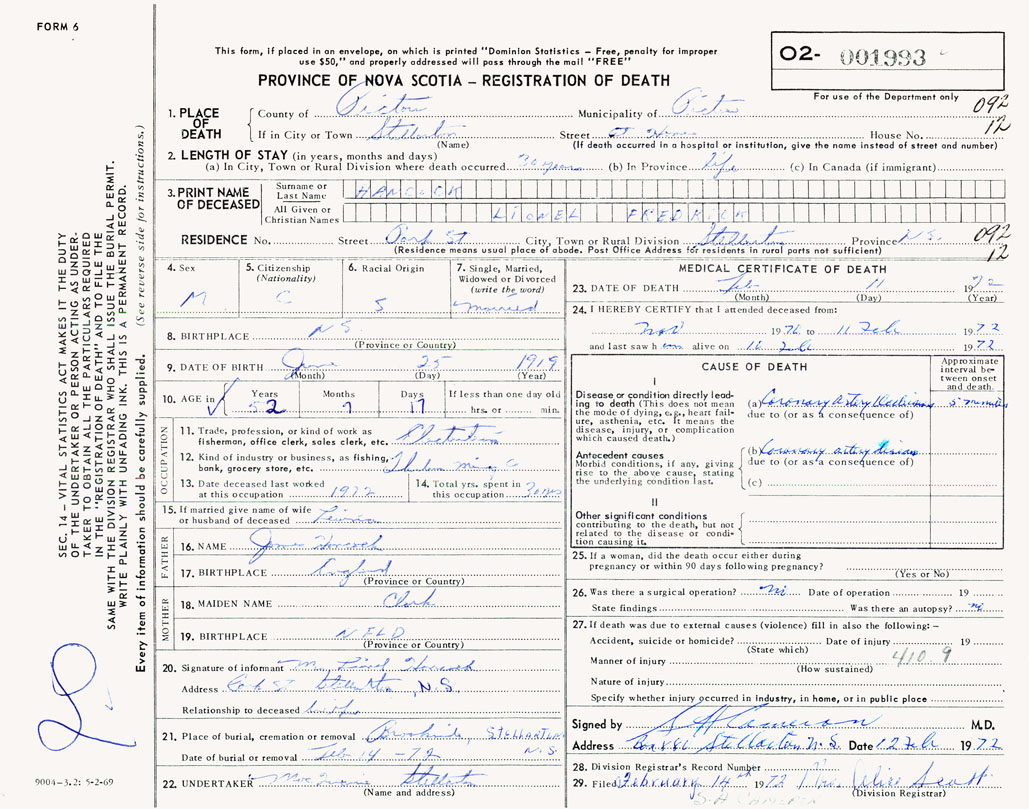 FORM 6
This form, if placed in an envelope, on which is printed "Dominion Statistics – Free, penalty for improper
use $50," and properly addressed will pass through the mail "FREE"
O2- 001993
For use of the Department only
PROVINCE OF NOVA SCOTIA – REGISTRATION OF DEATH
1. PLACE OF DEATH
County of Pictou Municipality of Pictou 092
If in City or Town Stellarton Street at Home House No. 12
(Name) (If death occurred in a hospital or institution, give the name instead of street and number)
2. LENGTH OF STAY (in years, months and days)
(a) In City, Town or Rural Division where death occurred 30 years (b) In Province life (c) In Canada (if immigrant)
3. PRINT NAME OF DECEASED
Surname or Last Name HANCOCK
All Given or Christian Names LIONEL FREDRICK
RESIDENCE No. Street City, Town or Rural Division Stellarton Province N.S. 092
(Residence means usual place of abode. Post Office Address for residents in rural parts not sufficient) 12
4. Sex M
5. Citizenship (Nationality) C
6. Racial Origin S
7. Single, Married, Widowed or Divorced (write the word) Married
8. BIRTHPLACE N.S.
(Province or Country)
9. DATE OF BIRTH June 25 1919
(Month) (Day) (Year)
10. AGE in Years 52 Months 7 Days 17 If less than one day old hrs. or min.
OCCUPATION
11. Trade, profession, or kind of work as
fisherman, office clerk, sales clerk, etc.
12. Kind of industry or business, as fishing,
bank, grocery store, etc.
13. Date deceased last worked
at this occupation 1972
14. Total yrs. spent in
this occupation 30 yrs
15. If married give name of wife
or husband of deceased
FATHER
16. NAME James Hancock
17. BIRTHPLACE England
(Province or Country)
MOTHER
18. MAIDEN NAME Clark
19. BIRTHPLACE NFLD
(Province or Country)
20. Signature of informant Hancock
Address Stellarton, N.S.
Relationship to deceased
21. Place of burial, cremation or removal STELLARTON N.S.
Date of burial or removal Feb 14 -72
22. UNDERTAKER Stellarton
(Name and address)
MEDICAL CERTIFICATE OF DEATH
23. DATE OF DEATH Feb 11 1972
(Month) (Day) (Year)
24. I HEREBY CERTIFY that I attended deceased from:
Nov 1970 to 11 Feb 1972
and last saw him alive on 10 Feb 1972
CAUSE OF DEATH
Approximate interval between onset and death.
I
Disease or condition directly leading
to death (This does not mean
the mode of dying, e.g., heart failure,
asthenia, etc. It means the
disease, injury, or complication
which caused death.)
(a) Coronary Artery Occlusion 5 minutes
due to (or as a consequence of)
Antecedent causes
Morbid conditions, if any, giving
rise to the above cause, stating
the underlying condition last.
(b) Coronary artery disease
due to (or as a consequence of)
(c)
II
Other significant conditions
contributing to the death, but not
related to the disease or condition
causing it.
25. If a woman, did the death occur either during
pregnancy or within 90 days following pregnancy?
(Yes or No)
26. Was there a surgical operation? no Date of operation 19
State findings Was there an autopsy? no
27. If death was due to external causes (violence) fill in also the following: –
Accident, suicide or homicide? Date of injury 19
(State which)
Manner of injury 410.9
(How sustained)
Nature of injury
Specify whether injury occurred in industry, in home, or in public place
Signed by Cameron M.D.
Address Box 881 Stellarton N.S. Date 12 Feb 1972
28. Division Registrar's Record Number
29. Filed February 14th 1972 Mrs. Alice Scott
(Division Registrar)
SEC. 14 – VITAL STATISTICS ACT MAKES IT THE DUTY
OF THE UNDERTAKER OR PERSON ACTING AS UNDER-
TAKER TO OBTAIN ALL THE PARTICULARS REQUIRED
IN THE "REGISTRATION OF DEATH" AND TO FILE THE
SAME WITH THE DIVISION REGISTRAR WHO SHALL ISSUE THE BURIAL PERMIT.
WRITE PLAINLY WITH UNFADING INK. THIS IS A PERMANENT RECORD.
Every item of information should be carefully supplied. (See reverse side for instructions.)
9004-3.2: 5-2-69